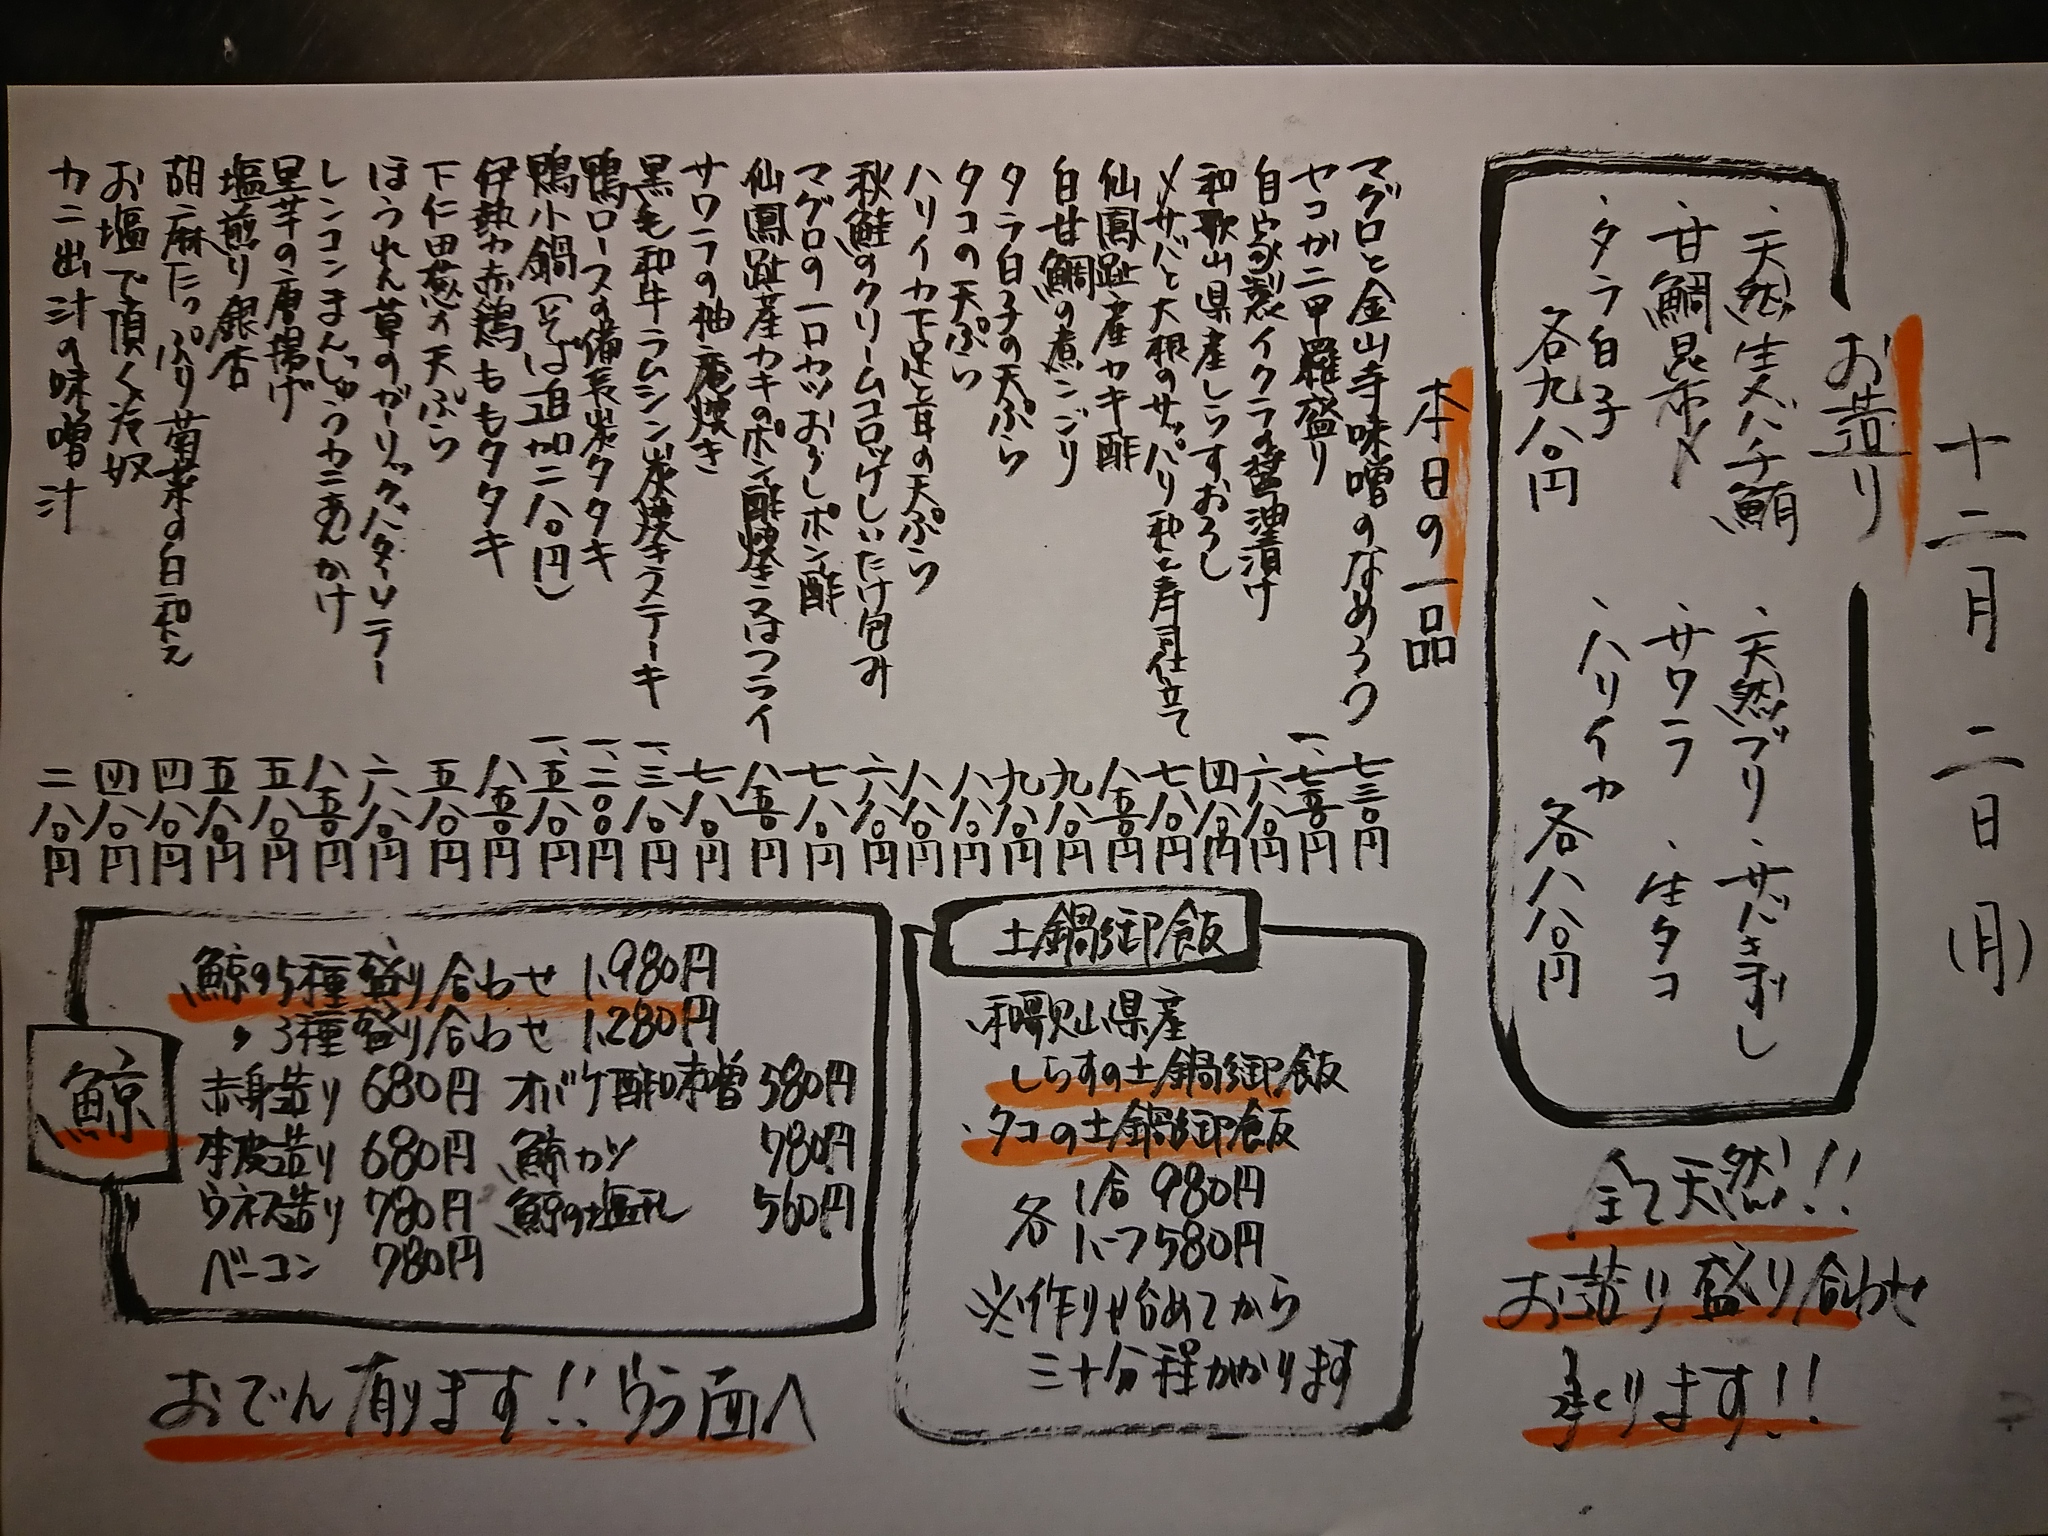 十二月二日(月)
お造り
・天然生メバチ鮪 ・天然ブリ ・サバきずし
・甘鯛昆布〆 ・サワラ ・生タコ
・タラ白子 ・ハリイカ
各九八〇円 各八八〇円
全て天然!!
お造り盛り合わせ
承ります!!
本日の一品
マグロと金山寺味噌のなめろう 七三〇円
セコガニ甲羅盛り 一、七五〇円
自家製イクラの醤油漬け 六八〇円
和歌山県産しらすおろし 四八〇円
〆サバと大根のサッパリ和え寿司仕立て 七八〇円
仙鳳趾産カキ酢 八五〇円
白甘鯛の煮こごり 九八〇円
タラ白子の天ぷら 九八〇円
タコの天ぷら 八八〇円
ハリイカ下足と耳の天ぷら 八八〇円
秋鮭のクリームコロッケしいたけ包み 六八〇円
マグロの一口カツおろしポン酢 七八〇円
仙鳳趾産カキのポン酢焼き又はフライ 八五〇円
サワラの柚庵焼き 七八〇円
黒毛和牛ラムシン炭焼きステーキ 一、三八〇円
鴨ロースの備長炭タタキ 一、二〇〇円
鴨小鍋(そば追加二八〇円) 一、五八〇円
伊勢赤鶏ももタタキ 八五〇円
下仁田葱の天ぷら 五八〇円
ほうれん草のガーリックバターソテー 六八〇円
レンコンまんじゅうカニあんかけ 八五〇円
里芋の唐揚げ 五八〇円
塩煎り銀杏 五八〇円
胡麻たっぷり菊菜の白和え 四八〇円
お塩で頂く冷奴 四八〇円
カニ出汁の味噌汁 二八〇円
土鍋御飯
・和歌山県産
しらすの土鍋御飯
・タコの土鍋御飯
各 1合 980円
1.5合 1,580円
※作り始めてから
三十分程かかります
鯨
鯨の5種盛り合わせ 1,980円
〃 3種盛り合わせ 1,280円
赤身造り 680円 オバケ酢味噌 580円
本皮造り 680円 鯨カツ 780円
ウネス造り 780円 鯨の塩汁 560円
ベーコン 780円
おでん有ります!!ウラ面へ